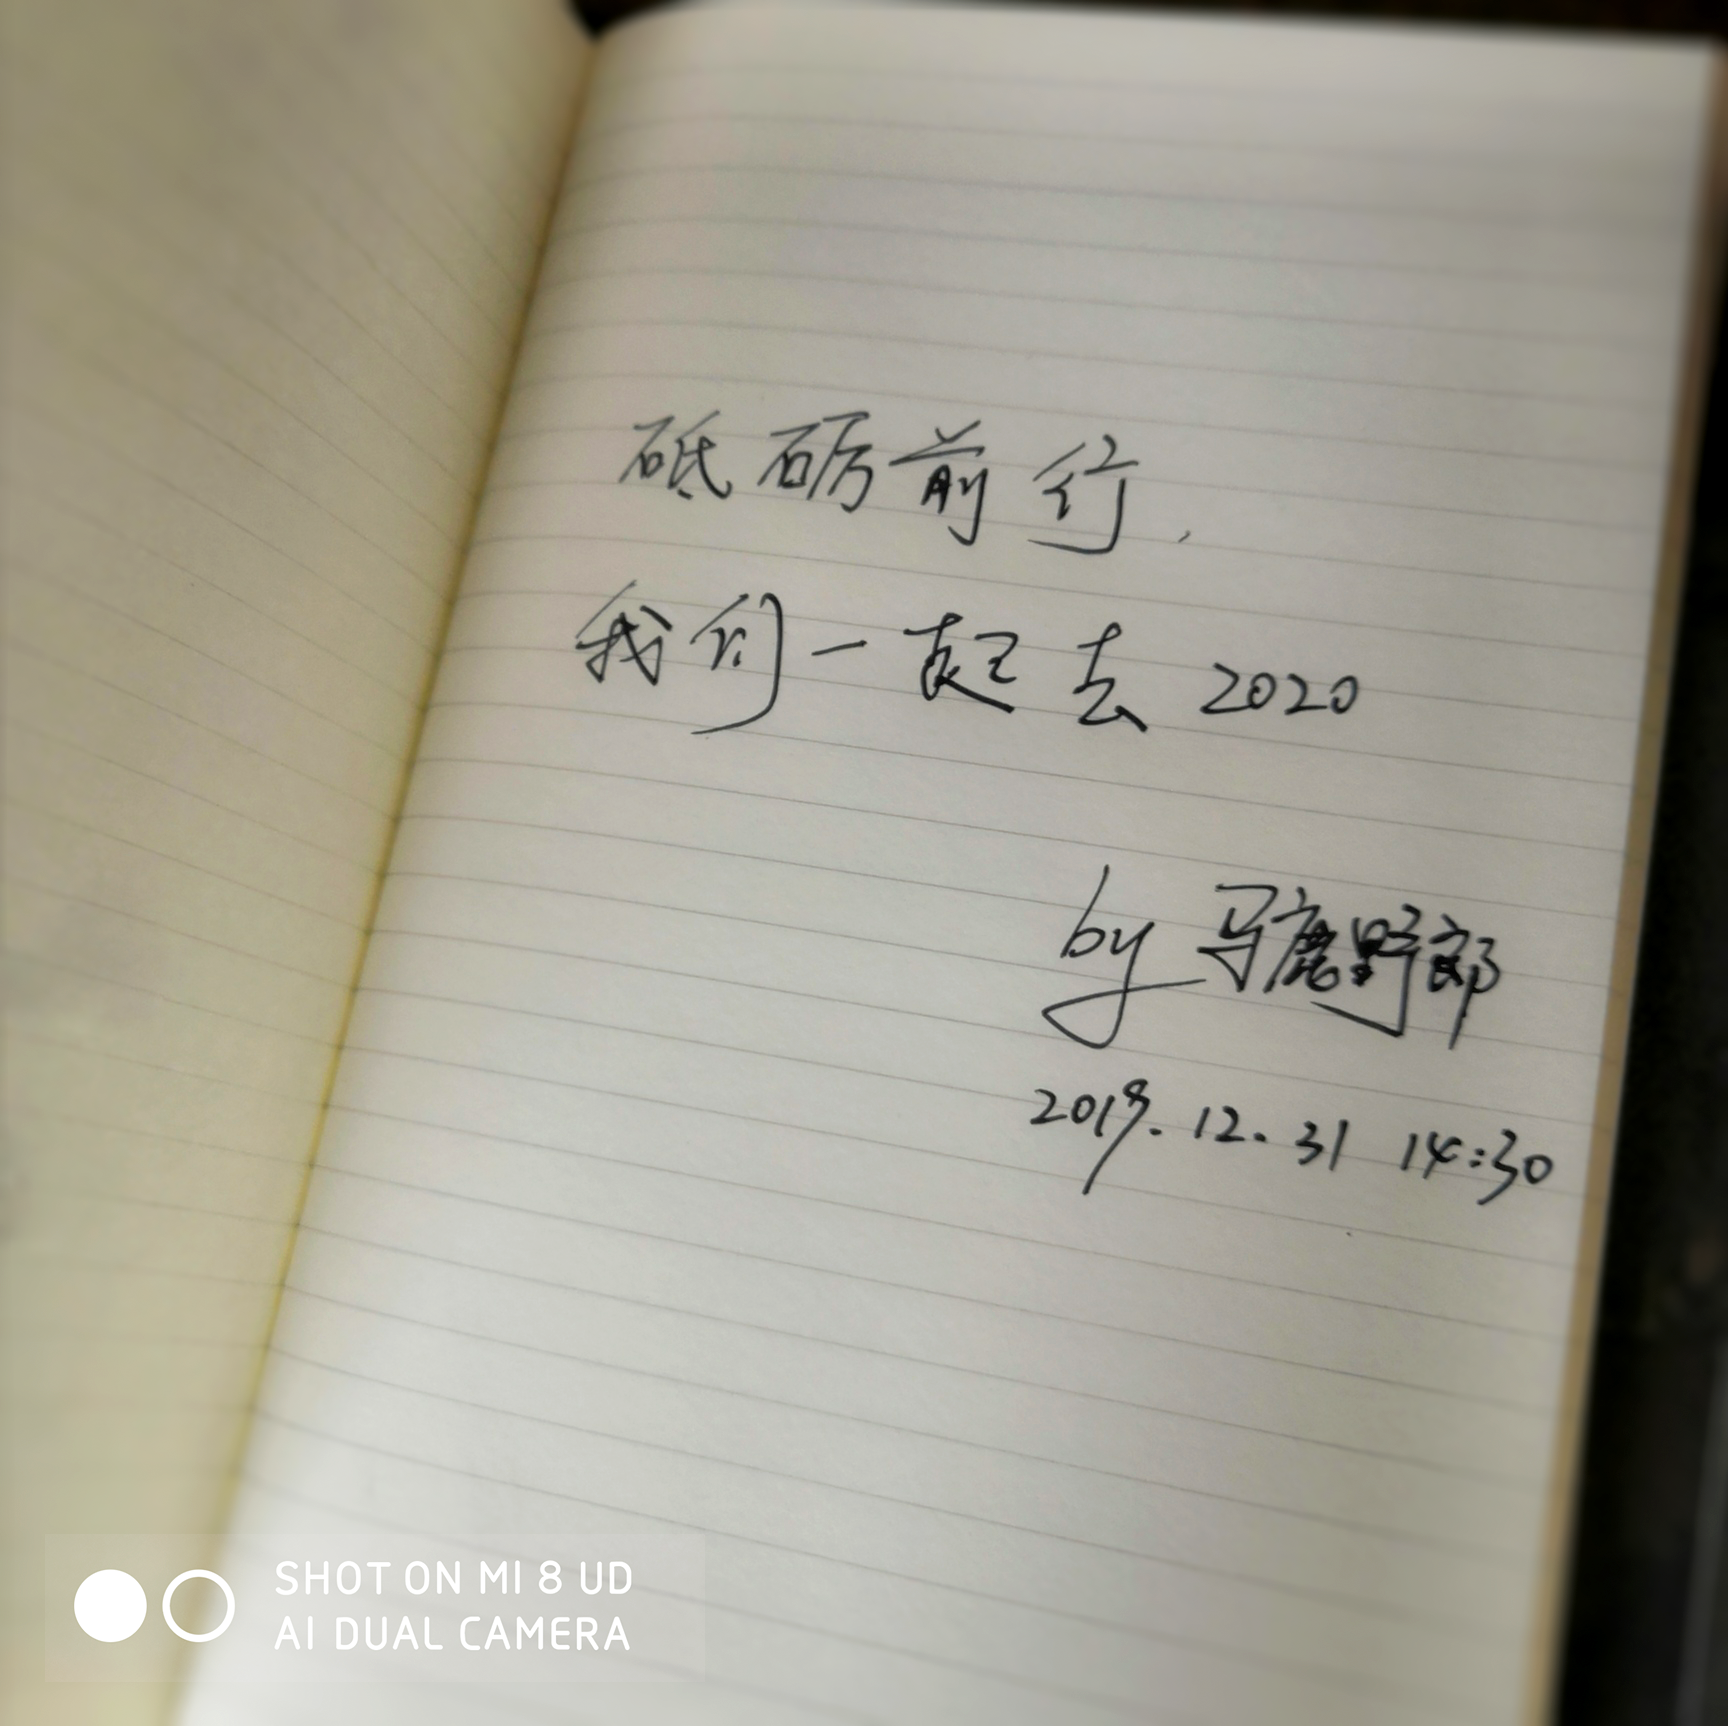 砥砺前行，
我们一起去 2020
by 马鹿野郎
2019.12.31 14:30
SHOT ON MI 8 UD
AI DUAL CAMERA